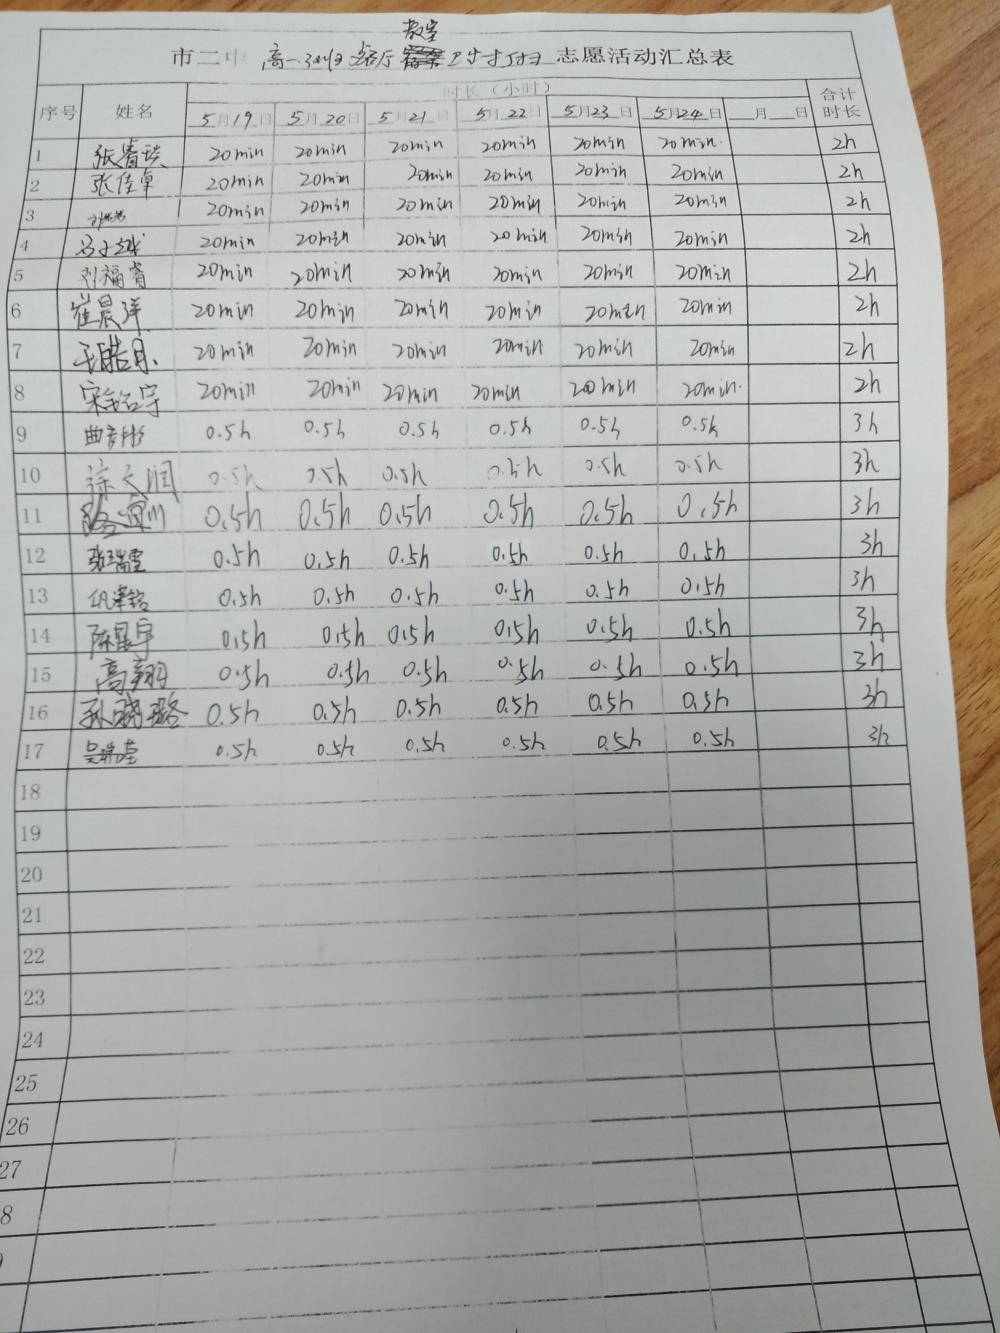 教室
市二中 高一.3班 餐厅 卫生打扫 志愿活动汇总表
序号 姓名 时长（小时） 合计时长
5月19日 5月20日 5月21日 5月22日 5月23日 5月24日 月 日
1 20min 20min 20min 20min 20min 20min. 2h
2 张佳卓 20min 20min 20min 20min 20min 20min 2h
3 20min 20min 20min 20min 20min 20min 2h
4 20min 20min 20min 20min 20min 20min 2h
5 刘福睿 20min 20min 20min 20min 20min 20min 2h
6 崔晨洋 20min 20min 20min 20min 20min 20min 2h
7 20min 20min 20min 20min 20min 20min 2h
8 宋铭宇 20min 20min 20min 20min 20min 20min. 2h
9 曲彦彬 0.5h 0.5h 0.5h 0.5h 0.5h 0.5h 3h
10 徐天润 0.5h 0.5h 0.5h 0.5h 0.5h 0.5h 3h
11 0.5h 0.5h 0.5h 0.5h 0.5h 0.5h 3h
12 张瑞雪 0.5h 0.5h 0.5h 0.5h 0.5h 0.5h 3h
13 0.5h 0.5h 0.5h 0.5h 0.5h 0.5h 3h
14 陈昱宇 0.5h 0.5h 0.5h 0.5h 0.5h 0.5h 3h
15 高翔 0.5h 0.5h 0.5h 0.5h 0.5h 0.5h 3h
16 孙晓璐 0.5h 0.5h 0.5h 0.5h 0.5h 0.5h 3h
17 0.5h 0.5h 0.5h 0.5h 0.5h 0.5h 3h
18
19
20
21
22
23
24
25
26
27
8